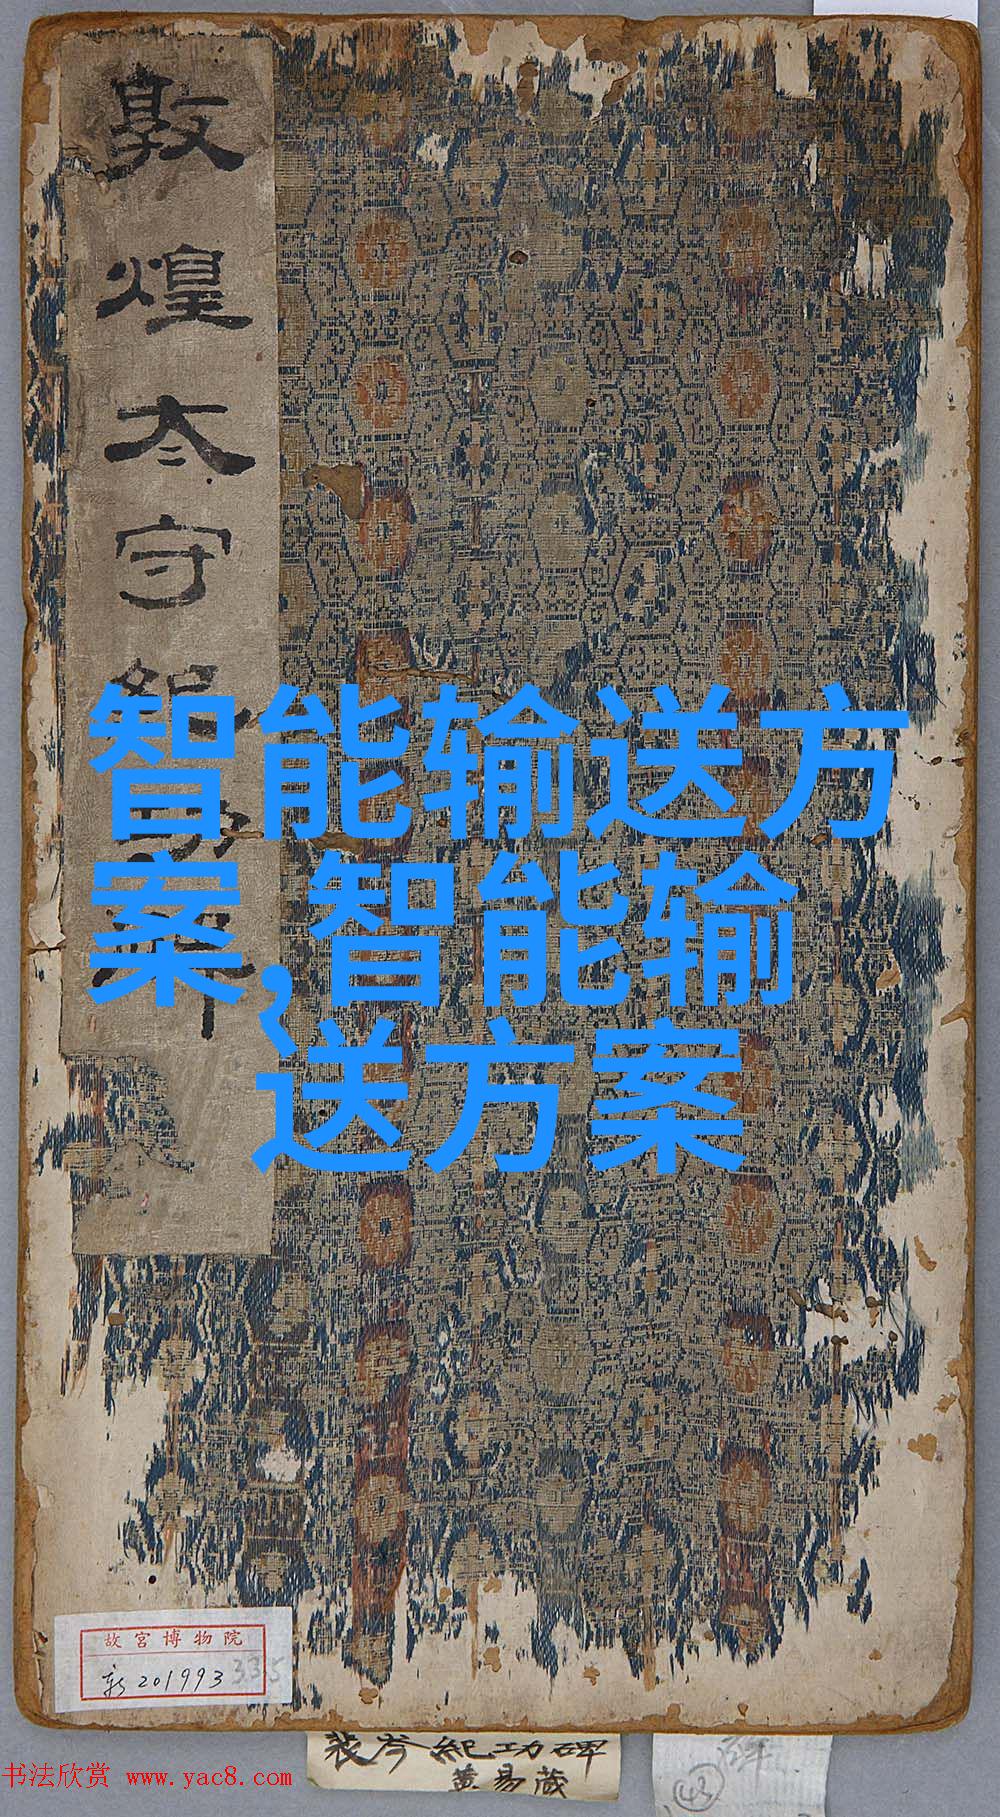 敦煌太守紀功碑
智能输送方
案,智能输
送方案
故宫博物院
新201993
335
裴岑紀功碑
黄易藏
43
书法欣赏 www.yac8.com